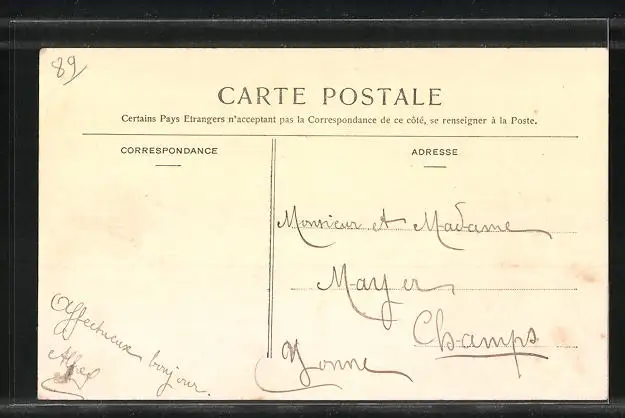 89
CARTE POSTALE
Certains Pays Etrangers n'acceptant pas la Correspondance de ce côté, se renseigner à la Poste.
CORRESPONDANCE
Affectueux bonjour.
ADRESSE
Monsieur et Madame
Mayer
Champs
Yonne